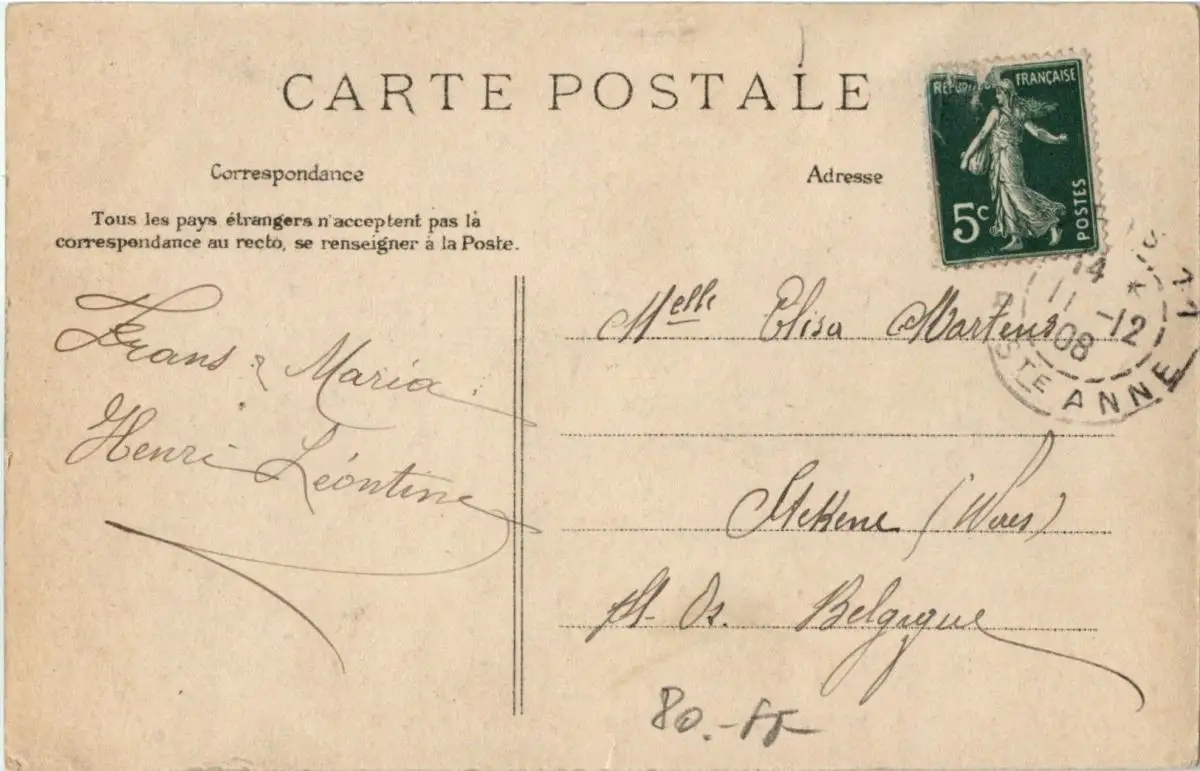 CARTE POSTALE
RÉPUBLIQUE FRANÇAISE
5c
POSTES
Correspondance
Adresse
Tous les pays étrangers n'acceptent pas la
correspondance au recto, se renseigner à la Poste.
14
11 -12
08
STE ANNE
Frans & Maria
Henri Léontine
Melle Elisa Martens
Stekene (Waes)
Belgique
80.-